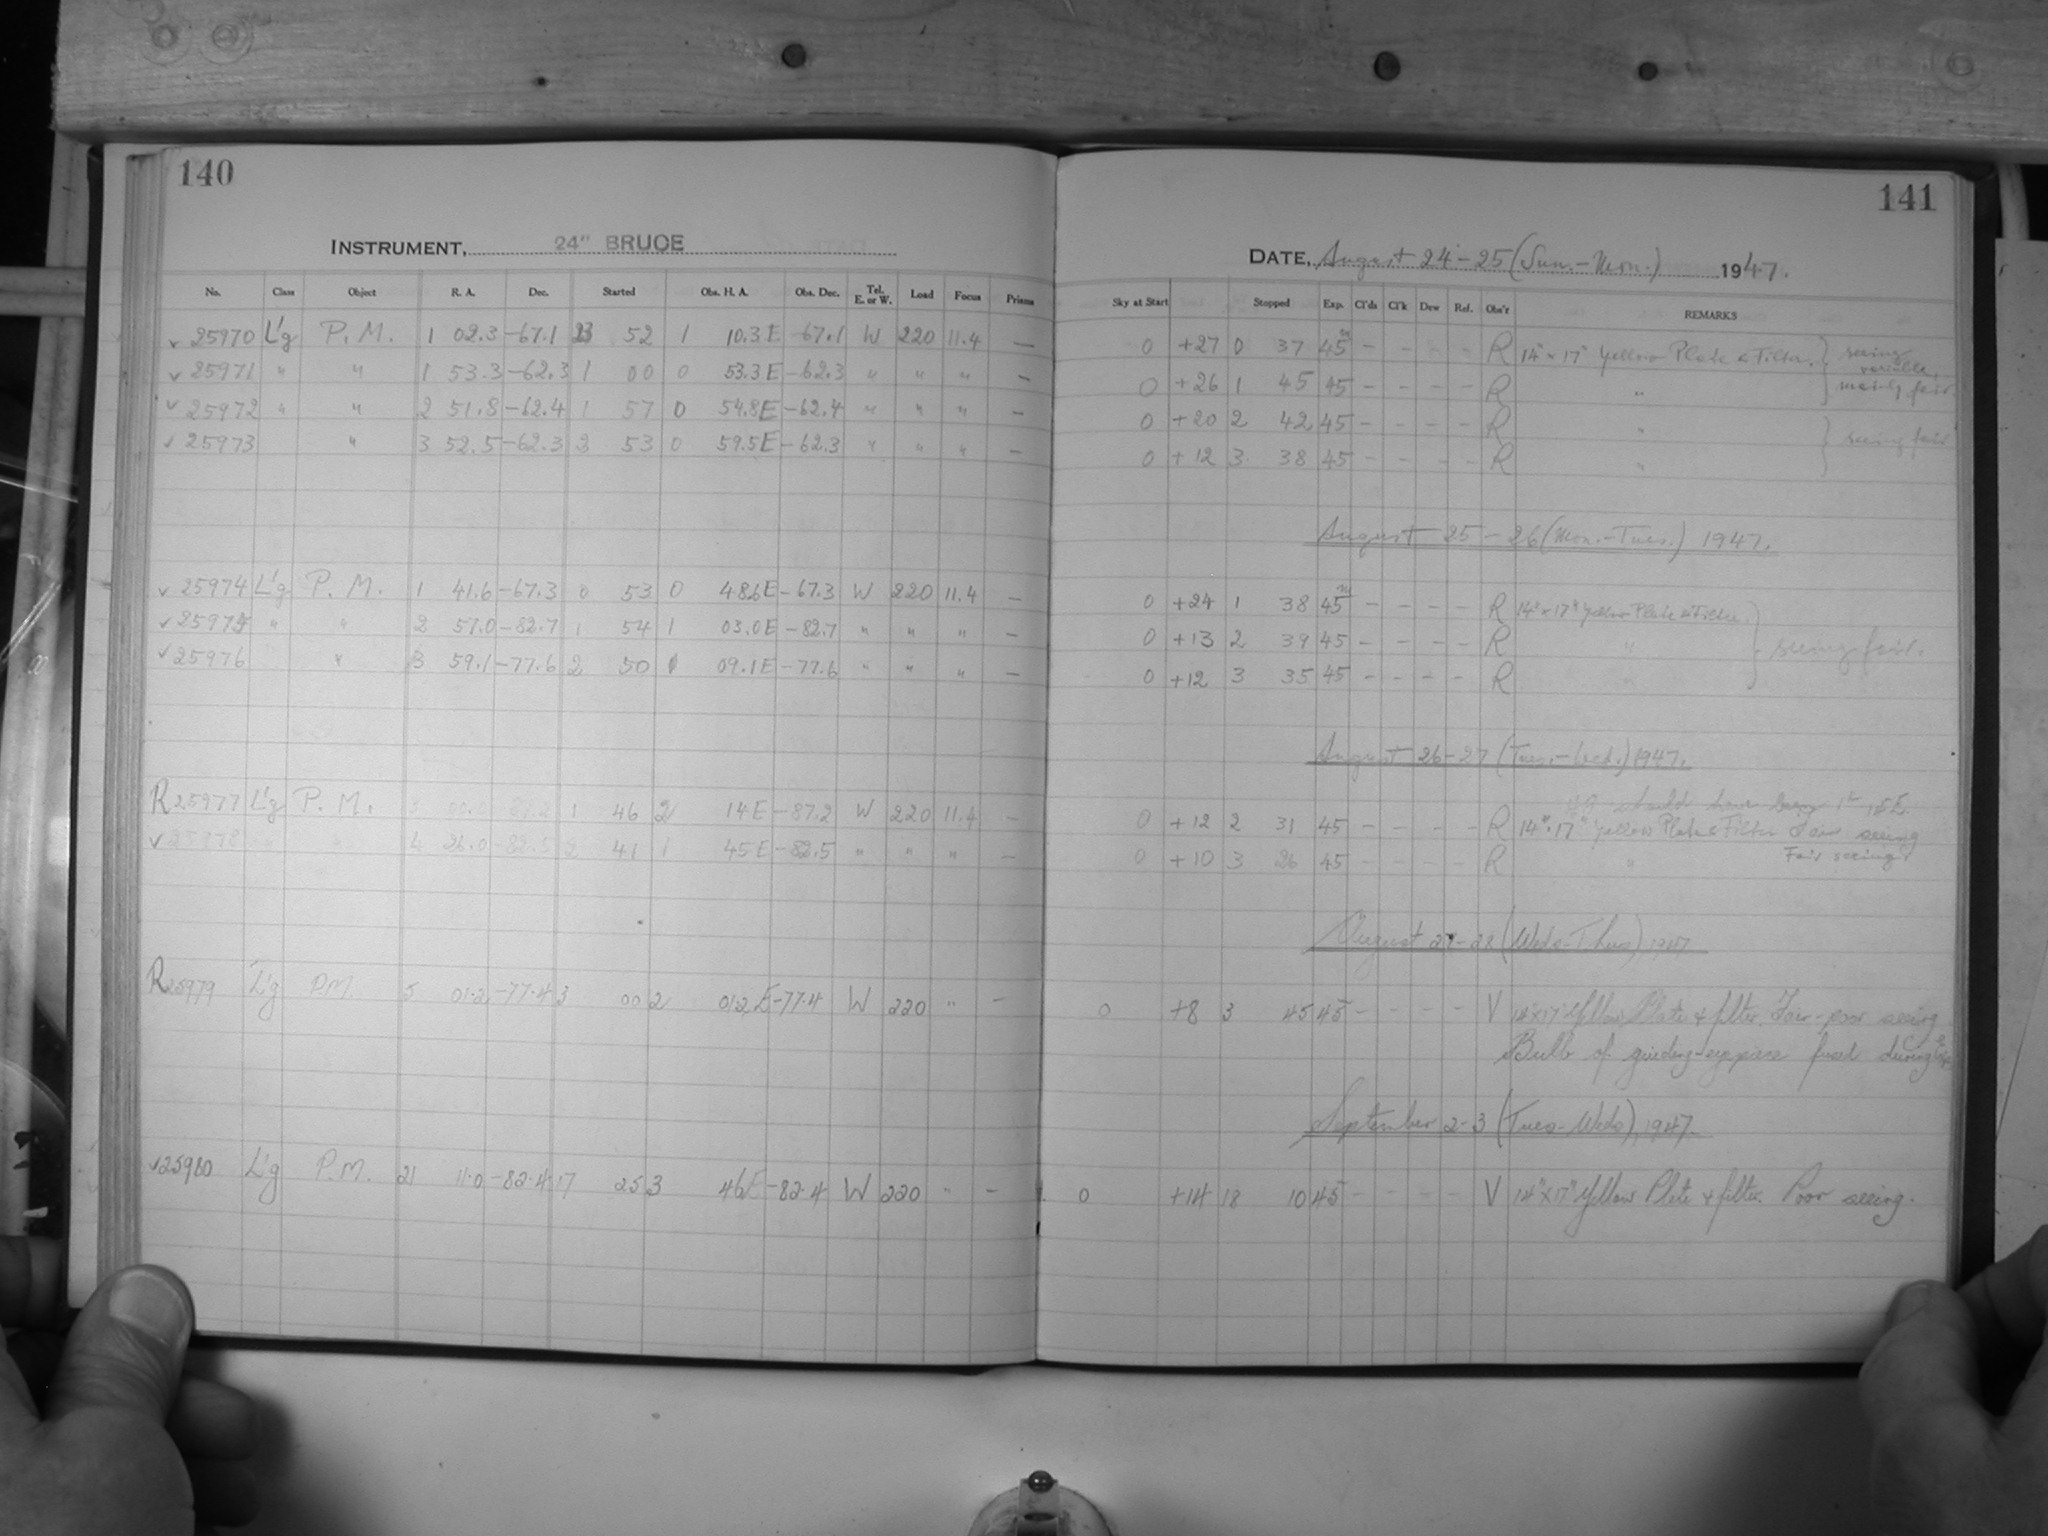 140
INSTRUMENT, 24" BRUCE
No. Class Object R. A. Dec. Started Obs. H. A. Obs. Dec. Tel. E. or W. Load Focus Prisms
✓ 25970 L'g P. M. 1 02.3 -67.1 23 52 1 10.3 E -67.1 W 220 11.4 —
✓ 25971 " " 1 53.3 -62.3 1 00 0 53.3 E -62.3 " " " —
✓ 25972 " " 2 51.8 -62.4 1 57 0 54.8 E -62.4 " " " —
✓ 25973 " 3 52.5 -62.3 2 53 0 59.5 E -62.3 " " " —
✓ 25974 L'g P. M. 1 41.6 -67.3 0 53 0 48.6 E -67.3 W 220 11.4 —
✓ 25975 " " 2 57.0 -82.7 1 54 1 03.0 E -82.7 " " " —
✓ 25976 " 3 59.1 -77.6 2 50 1 09.1 E -77.6 " " " —
R 25977 L'g P. M. 3 -87.2 1 46 2 14 E -87.2 W 220 11.4 —
✓ 25978 " " 4 26.0 -82.5 2 41 1 45 E -82.5 " " " —
R 25979 L'g P.M. 5 01.2 -77.4 3 00 2 01.2 E -77.4 W 220 " —
✓ 25980 L'g P.M. 21 11.0 -82.4 17 25 3 46 E -82.4 W 220 " —
141
DATE, August 24-25 (Sun.-Mon.) 1947.
Sky at Start Stopped Exp. Cl'ds Cl'k Dew Ref. Obs'r REMARKS
0 +27 0 37 45m - - - - R 14" x 17" Yellow Plate & Filter. } seeing variable,
0 +26 1 45 45 - - - - R " } mainly fair
0 +20 2 42 45 - - - - R " } seeing fair
0 +12 3 38 45 - - - - R "
August 25-26 (Mon.-Tues.) 1947.
0 +24 1 38 45m - - - - R 14" x 17" Yellow Plate & Filter.
0 +13 2 39 45 - - - - R " } seeing fair.
0 +12 3 35 45 - - - - R "
August 26-27 (Tues.-Wed.) 1947.
should have been 1h 14 E.
0 +12 2 31 45 - - - - R 14" x 17" Yellow Plate & Filter Fair seeing
0 +10 3 26 45 - - - - R " Fair seeing
August 27-28 (Weds-Thurs) 1947
0 +8 3 45 45 - - - - V 14"x17" Yellow Plate & filter. Fair-poor seeing
Bulb of guiding-eyepiece fused during
September 2-3 (Tues-Weds), 1947
0 +14 18 10 45 - - - - V 14"x17" Yellow Plate & filter. Poor seeing.